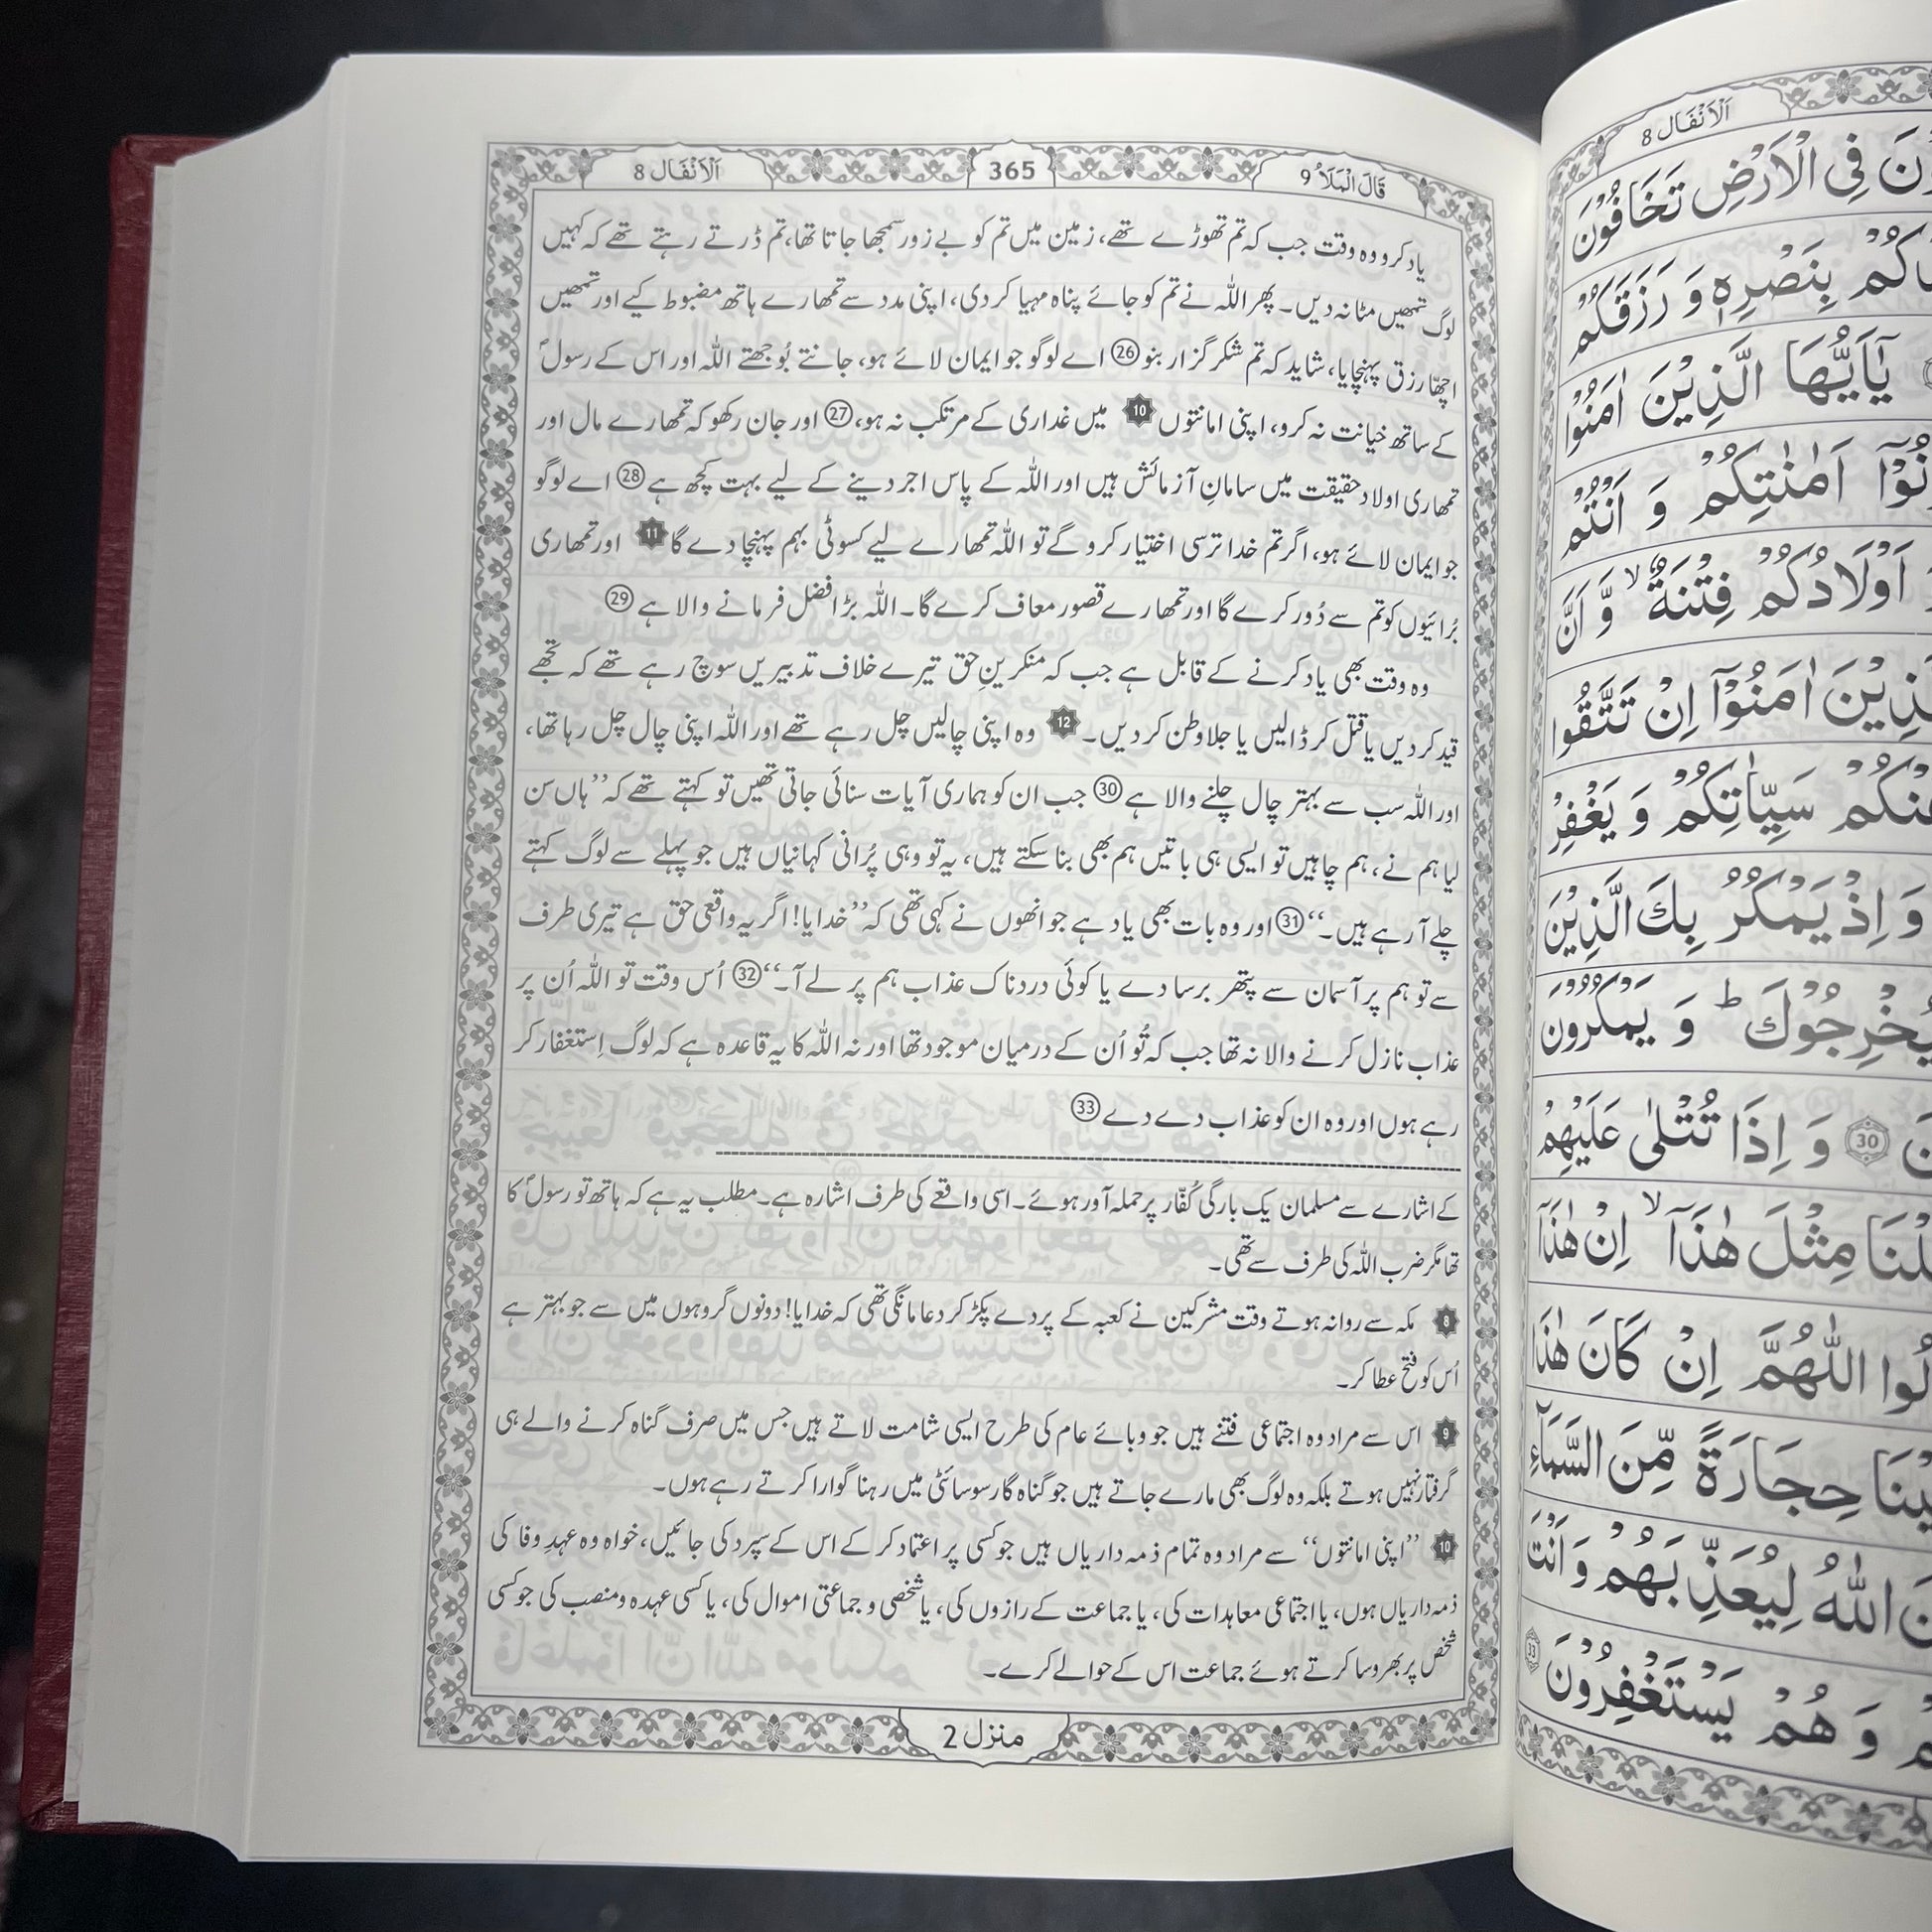 قَالَ الْمَلَاُ 9
365
اَلْاَنْفَال 8
یاد کرو وہ وقت جب کہ تم تھوڑے تھے، زمین میں تم کو بے زور سمجھا جاتا تھا، تم ڈرتے رہتے تھے کہ کہیں
لوگ تمھیں مٹا نہ دیں۔ پھر اللہ نے تم کو جائے پناہ مہیا کر دی، اپنی مدد سے تمھارے ہاتھ مضبوط کیے اور تمھیں
اچھّا رزق پہنچایا، شاید کہ تم شکر گزار بنو ㉖ اے لوگو جو ایمان لائے ہو، جانتے بُوجھتے اللہ اور اس کے رسولؐ
کے ساتھ خیانت نہ کرو، اپنی امانتوں 10 میں غداری کے مرتکب نہ ہو، ㉗ اور جان رکھو کہ تمھارے مال اور
تمھاری اولاد حقیقت میں سامانِ آزمائش ہیں اور اللہ کے پاس اجر دینے کے لیے بہت کچھ ہے ㉘ اے لوگو
جو ایمان لائے ہو، اگر تم خدا ترسی اختیار کرو گے تو اللہ تمھارے لیے کسوٹی بہم پہنچا دے گا 11 اور تمھاری
بُرائیوں کو تم سے دُور کرے گا اور تمھارے قصور معاف کرے گا۔ اللہ بڑا فضل فرمانے والا ہے ㉙
وہ وقت بھی یاد کرنے کے قابل ہے جب کہ منکرینِ حق تیرے خلاف تدبیریں سوچ رہے تھے کہ تجھے
قید کر دیں یا قتل کر ڈالیں یا جلا وطن کر دیں۔ 12 وہ اپنی چالیں چل رہے تھے اور اللہ اپنی چال چل رہا تھا،
اور اللہ سب سے بہتر چال چلنے والا ہے ㉚ جب ان کو ہماری آیات سنائی جاتی تھیں تو کہتے تھے کہ ’’ہاں سن
لیا ہم نے، ہم چاہیں تو ایسی ہی باتیں ہم بھی بنا سکتے ہیں، یہ تو وہی پُرانی کہانیاں ہیں جو پہلے سے لوگ کہتے
چلے آ رہے ہیں۔‘‘ ㉛ اور وہ بات بھی یاد ہے جو انھوں نے کہی تھی کہ ’’خدایا! اگر یہ واقعی حق ہے تیری طرف
سے تو ہم پر آسمان سے پتھر برسا دے یا کوئی دردناک عذاب ہم پر لے آ۔‘‘ ㉜ اُس وقت تو اللہ اُن پر
عذاب نازل کرنے والا نہ تھا جب کہ تُو اُن کے درمیان موجود تھا اور نہ اللہ کا یہ قاعدہ ہے کہ لوگ اِستغفار کر
رہے ہوں اور وہ ان کو عذاب دے دے ㉝
کے اشارے سے مسلمان یک بارگی کُفّار پر حملہ آور ہوئے۔ اسی واقعے کی طرف اشارہ ہے۔ مطلب یہ ہے کہ ہاتھ تو رسولؐ کا
تھا مگر ضرب اللہ کی طرف سے تھی۔
8 مکہ سے روانہ ہوتے وقت مشرکین نے کعبہ کے پردے پکڑ کر دعا مانگی تھی کہ خدایا! دونوں گروہوں میں سے جو بہتر ہے
اُس کو فتح عطا کر۔
9 اس سے مراد وہ اجتماعی فتنے ہیں جو وبائے عام کی طرح ایسی شامت لاتے ہیں جس میں صرف گناہ کرنے والے ہی
گرفتار نہیں ہوتے بلکہ وہ لوگ بھی مارے جاتے ہیں جو گناہ گار سوسائٹی میں رہنا گوارا کرتے رہے ہوں۔
10 ’’اپنی امانتوں‘‘ سے مراد وہ تمام ذمہ داریاں ہیں جو کسی پر اعتماد کر کے اس کے سپرد کی جائیں، خواہ وہ عہدِ وفا کی
ذمہ داریاں ہوں، یا اجتماعی معاہدات کی، یا جماعت کے رازوں کی، یا شخصی و جماعتی اموال کی، یا کسی عہدہ و منصب کی جو کسی
شخص پر بھروسا کرتے ہوئے جماعت اس کے حوالے کرے۔
منزل 2
اَلْاَنْفَال 8
فِي الْاَرْضِ تَخَافُوْنَ
بِنَصْرِهٖ وَ رَزَقَكُمْ
يٰۤاَيُّهَا الَّذِيْنَ اٰمَنُوْا
اَمٰنٰتِكُمْ وَ اَنْتُمْ
اَوْلَادُكُمْ فِتْنَةٌ ۙ وَّ اَنَّ
اٰمَنُوْۤا اِنْ تَتَّقُوا
سَيِّاٰتِكُمْ وَ يَغْفِرْ
وَ اِذْ يَمْكُرُ بِكَ الَّذِيْنَ
يُخْرِجُوْكَ ؕ وَ يَمْكُرُوْنَ
30 وَ اِذَا تُتْلٰى عَلَيْهِمْ
مِثْلَ هٰذَاۤ ۙ اِنْ هٰذَاۤ
اللّٰهُمَّ اِنْ كَانَ هٰذَا
حِجَارَةً مِّنَ السَّمَآءِ
اللّٰهُ لِيُعَذِّبَهُمْ وَ اَنْتَ
وَ هُمْ يَسْتَغْفِرُوْنَ 33